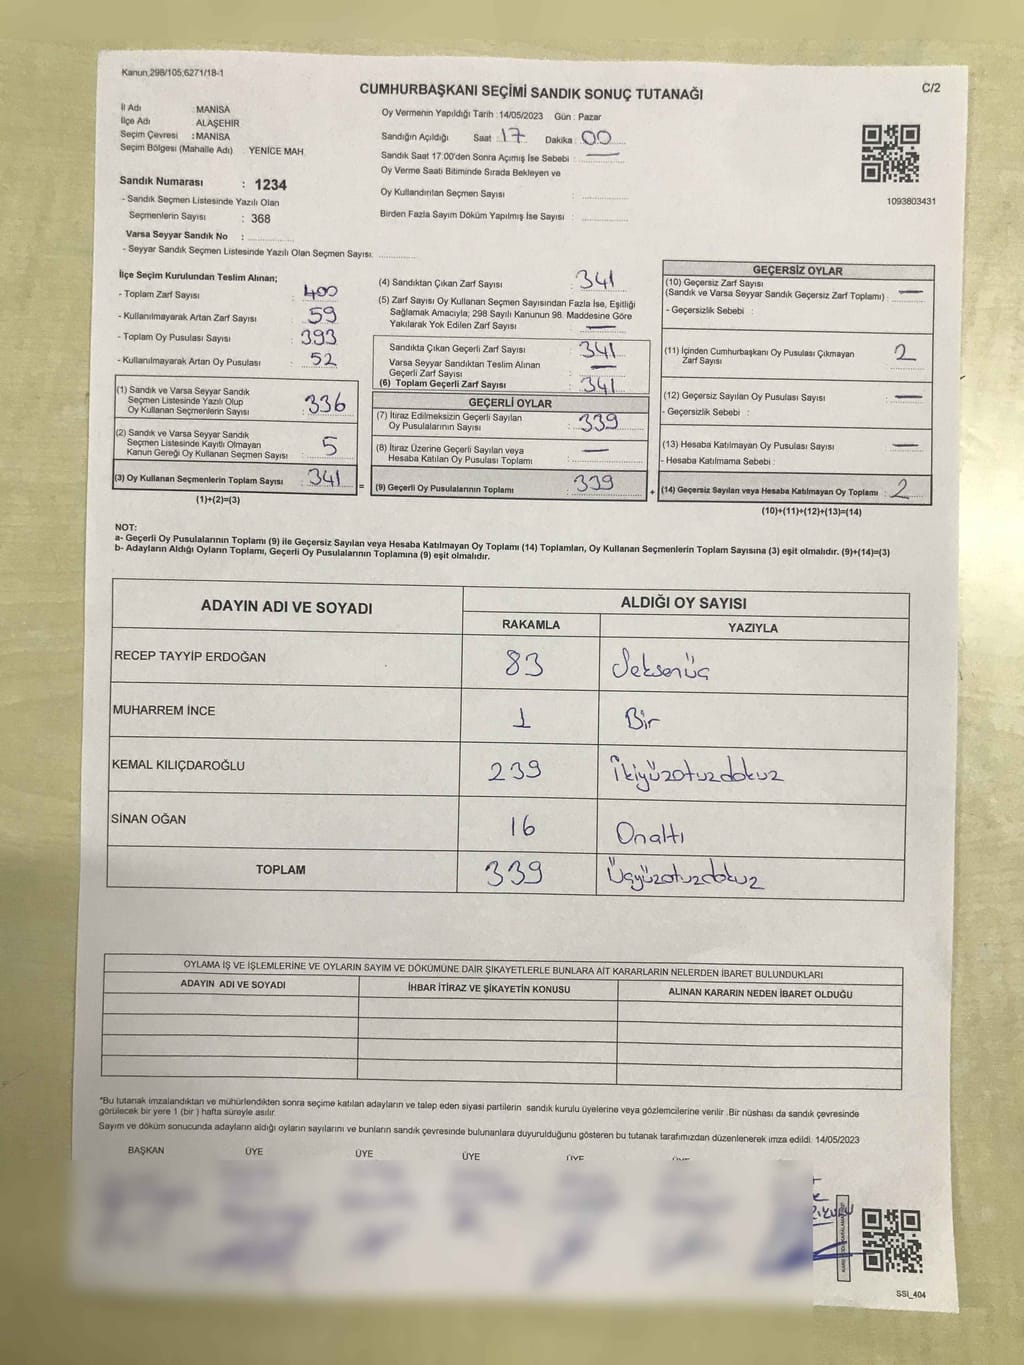 Kanun,298/105,6271/18-1
C/2
CUMHURBAŞKANI SEÇİMİ SANDIK SONUÇ TUTANAĞI
İl Adı : MANİSA
İlçe Adı : ALAŞEHİR
Seçim Çevresi : MANİSA
Seçim Bölgesi (Mahalle Adı) YENİCE MAH.
Sandık Numarası : 1234
- Sandık Seçmen Listesinde Yazılı Olan
Seçmenlerin Sayısı : 368
Varsa Seyyar Sandık No :
- Seyyar Sandık Seçmen Listesinde Yazılı Olan Seçmen Sayısı:
Oy Vermenin Yapıldığı Tarih : 14/05/2023 Gün : Pazar
Sandığın Açıldığı Saat : 17 Dakika : 00
Sandık Saat 17:00'den Sonra Açımış İse Sebebi : —
Oy Verme Saati Bitiminde Sırada Bekleyen ve
Oy Kullandırılan Seçmen Sayısı :
Birden Fazla Sayım Döküm Yapılmış İse Sayısı :
1093803431
İlçe Seçim Kurulundan Teslim Alınan;
- Toplam Zarf Sayısı : 400
- Kullanılmayarak Artan Zarf Sayısı : 59
- Toplam Oy Pusulası Sayısı : 393
- Kullanılmayarak Artan Oy Pusulası : 52
(1) Sandık ve Varsa Seyyar Sandık
Seçmen Listesinde Yazılı Olup
Oy Kullanan Seçmenlerin Sayısı : 336
(2) Sandık ve Varsa Seyyar Sandık
Seçmen Listesinde Kayıtlı Olmayan
Kanun Gereği Oy Kullanan Seçmen Sayısı : 5
(3) Oy Kullanan Seçmenlerin Toplam Sayısı : 341
(1)+(2)=(3)
=
(4) Sandıktan Çıkan Zarf Sayısı : 341
(5) Zarf Sayısı Oy Kullanan Seçmen Sayısından Fazla İse, Eşitliği
Sağlamak Amacıyla; 298 Sayılı Kanunun 98. Maddesine Göre
Yakılarak Yok Edilen Zarf Sayısı : —
Sandıkta Çıkan Geçerli Zarf Sayısı : 341
Varsa Seyyar Sandıktan Teslim Alınan
Geçerli Zarf Sayısı : —
(6) Toplam Geçerli Zarf Sayısı : 341
GEÇERLİ OYLAR
(7) İtiraz Edilmeksizin Geçerli Sayılan
Oy Pusulalarının Sayısı : 339
(8) İtiraz Üzerine Geçerli Sayılan veya
Hesaba Katılan Oy Pusulası Toplamı : —
(9) Geçerli Oy Pusulalarının Toplamı : 339
+
GEÇERSİZ OYLAR
(10) Geçersiz Zarf Sayısı
(Sandık ve Varsa Seyyar Sandık Geçersiz Zarf Toplamı) : —
- Geçersizlik Sebebi :
(11) İçinden Cumhurbaşkanı Oy Pusulası Çıkmayan
Zarf Sayısı : 2
(12) Geçersiz Sayılan Oy Pusulası Sayısı : —
- Geçersizlik Sebebi :
(13) Hesaba Katılmayan Oy Pusulası Sayısı : —
- Hesaba Katılmama Sebebi :
(14) Geçersiz Sayılan veya Hesaba Katılmayan Oy Toplamı : 2
(10)+(11)+(12)+(13)=(14)
NOT:
a- Geçerli Oy Pusulalarının Toplamı (9) ile Geçersiz Sayılan veya Hesaba Katılmayan Oy Toplamı (14) Toplamları, Oy Kullanan Seçmenlerin Toplam Sayısına (3) eşit olmalıdır. (9)+(14)=(3)
b- Adayların Aldığı Oyların Toplamı, Geçerli Oy Pusulalarının Toplamına (9) eşit olmalıdır.
ADAYIN ADI VE SOYADI
ALDIĞI OY SAYISI
RAKAMLA YAZIYLA
RECEP TAYYİP ERDOĞAN 83 Seksenüç
MUHARREM İNCE 1 Bir
KEMAL KILIÇDAROĞLU 239 İkiyüzotuzdokuz
SİNAN OĞAN 16 Onaltı
TOPLAM 339 Üçyüzotuzdokuz
OYLAMA İŞ VE İŞLEMLERİNE VE OYLARIN SAYIM VE DÖKÜMÜNE DAİR ŞİKAYETLERLE BUNLARA AİT KARARLARIN NELERDEN İBARET BULUNDUKLARI
ADAYIN ADI VE SOYADI İHBAR İTİRAZ VE ŞİKAYETİN KONUSU ALINAN KARARIN NEDEN İBARET OLDUĞU
*Bu tutanak imzalandıktan ve mühürlendikten sonra seçime katılan adayların ve talep eden siyasi partilerin sandık kurulu üyelerine veya gözlemcilerine verilir .Bir nüshası da sandık çevresinde
görülecek bir yere 1 (bir ) hafta süreyle asılır.
Sayım ve döküm sonucunda adayların aldığı oyların sayılarını ve bunların sandık çevresinde bulunanlara duyurulduğunu gösteren bu tutanak tarafımızdan düzenlenerek imza edildi. 14/05/2023
BAŞKAN ÜYE ÜYE ÜYE ÜYE
SSI_404